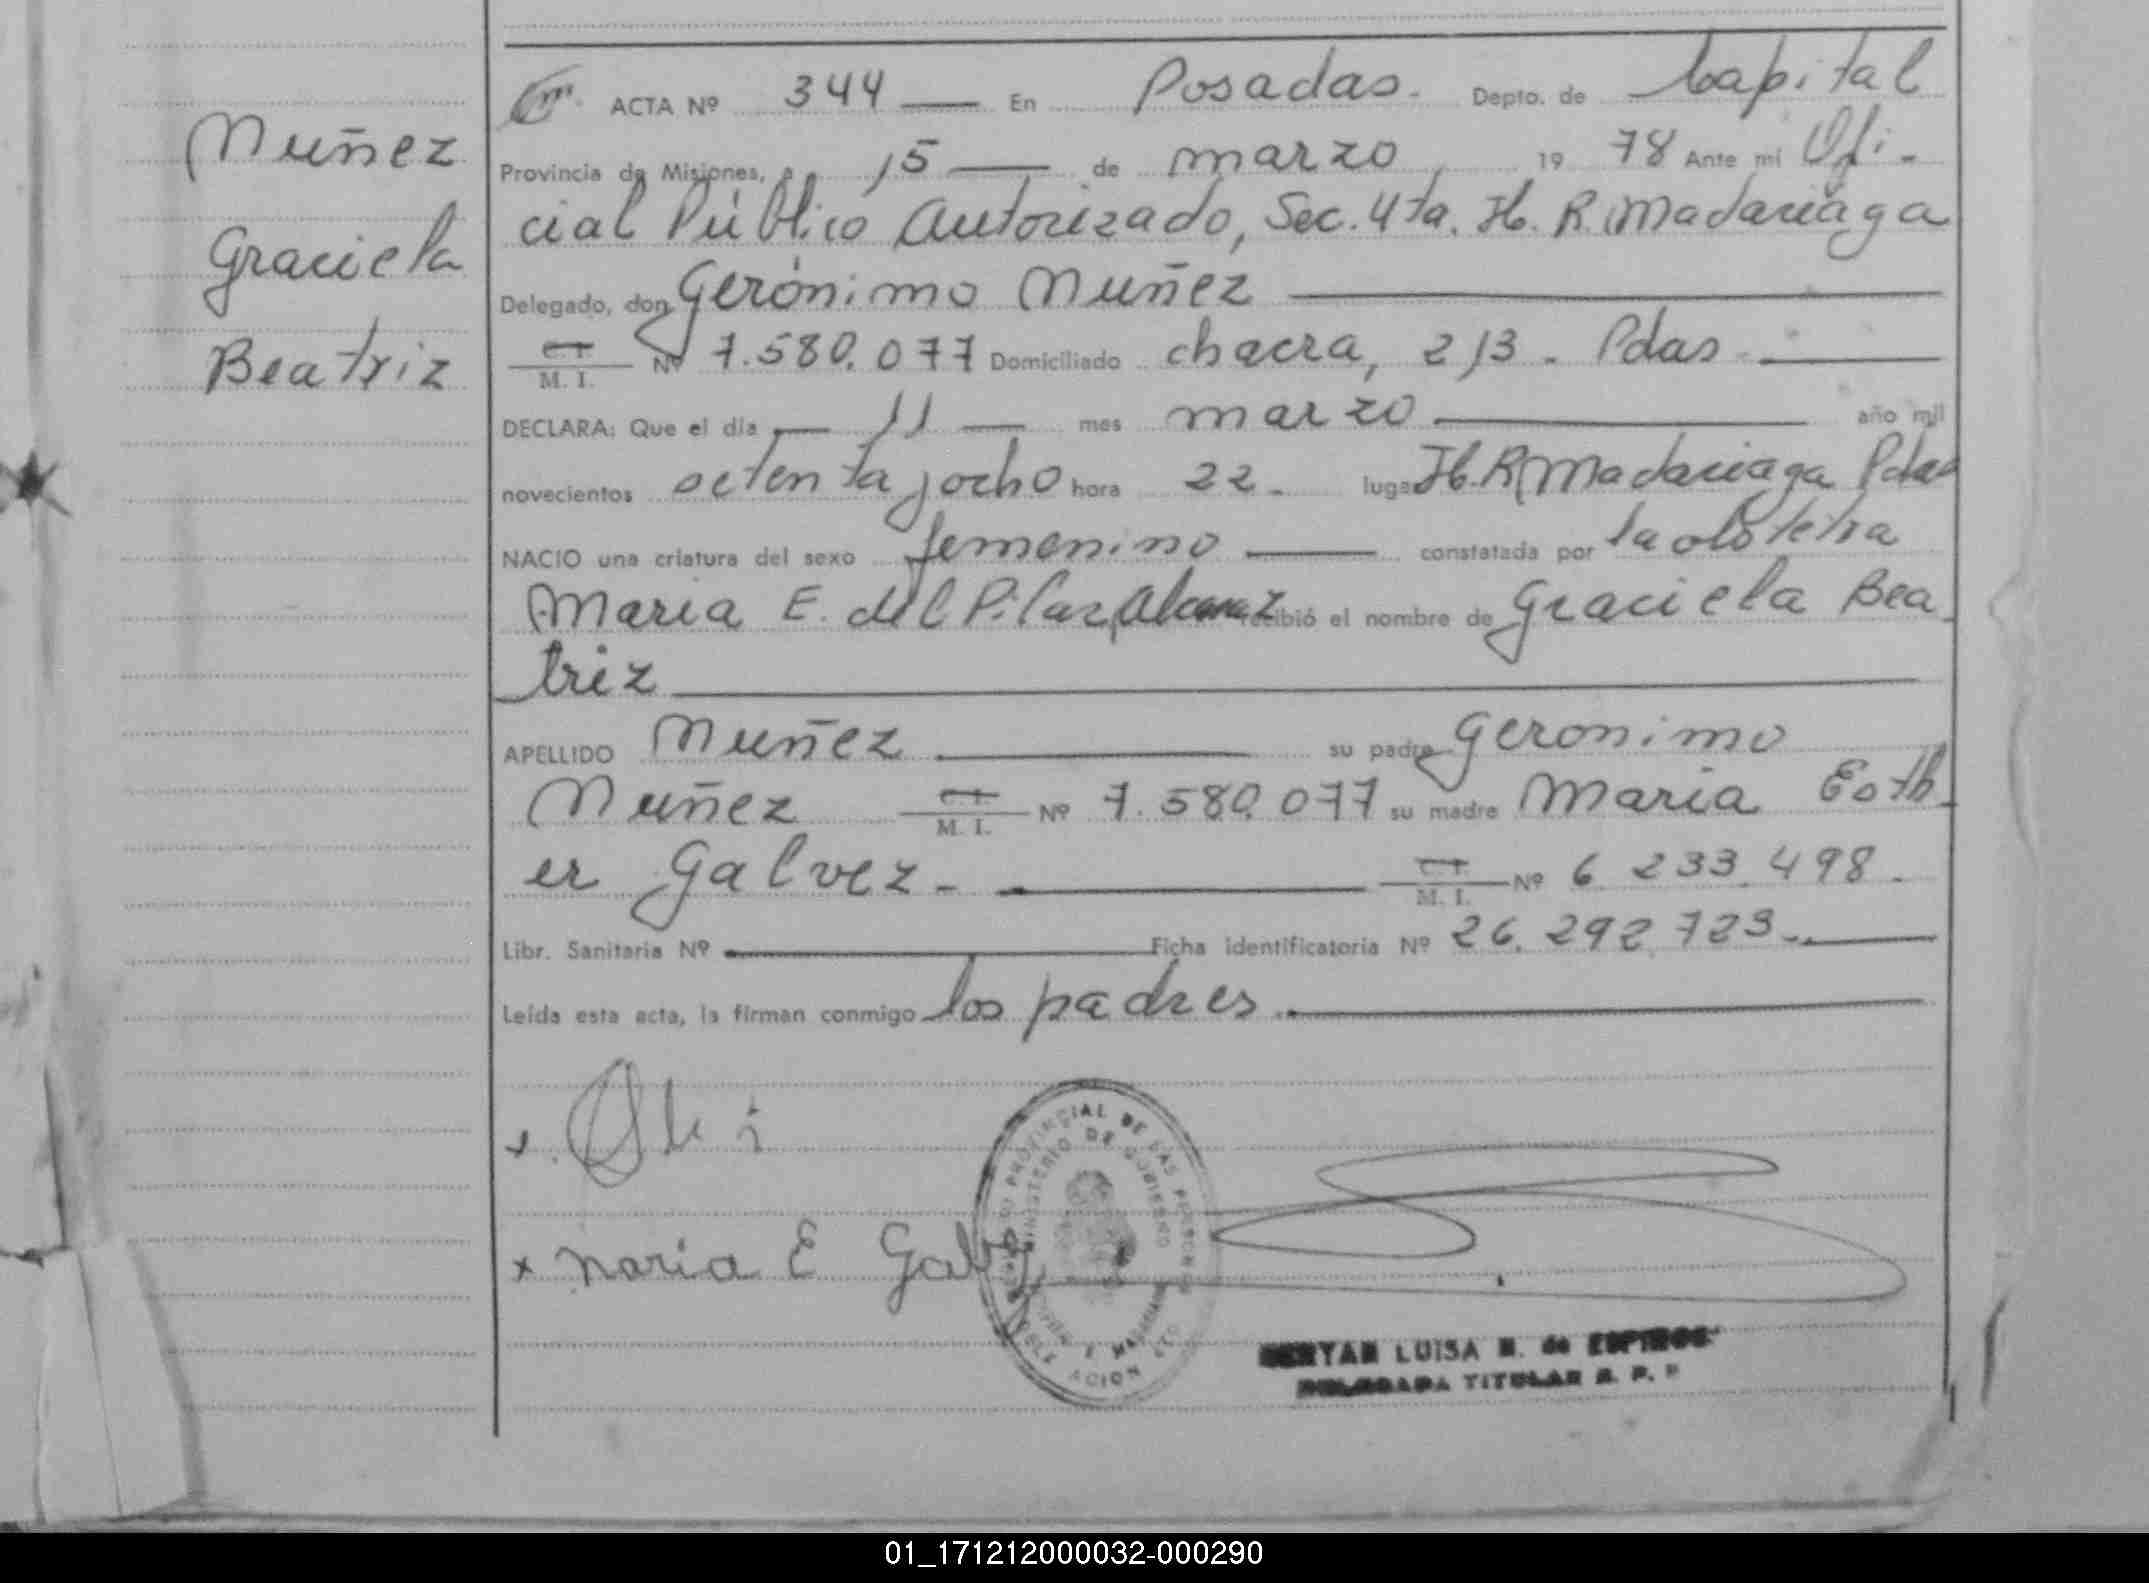 ACTA Nº 344 En Posadas. Depto. de Capital
Muñez
Provincia de Misiones, a 15 de marzo 19 78 Ante mí Ofi-
cial Público Autorizado, Sec. 4ta. H. R. Madariaga
Graciela
Delegado, don Gerónimo Muñez
Beatriz
C. I.
M. I. Nº 7.580.077 Domiciliado chacra, 213. Pdas
DECLARA: Que el día 11 mes marzo año mil
novecientos setenta y ocho hora 22. lugar H. R. Madariaga Pdas
NACIO una criatura del sexo femenino constatada por la obstetra
Maria E. del Pilar Alcaraz recibió el nombre de Graciela Bea
triz
APELLIDO Muñez su padre Geronimo
Muñez C. I. M. I. Nº 7.580.077 su madre Maria Esth
er Galvez - C. I. M. I. Nº 6 233.498.
Libr. Sanitaria Nº Ficha identificatoria Nº 26.292.723.
Leída esta acta, la firman conmigo los padres.
x maria E Galv
PROVINCIAL DE LAS PERSONAS
MINISTERIO DE GOBIERNO
LUISA de
TITULAR R. P. P
01_171212000032-000290